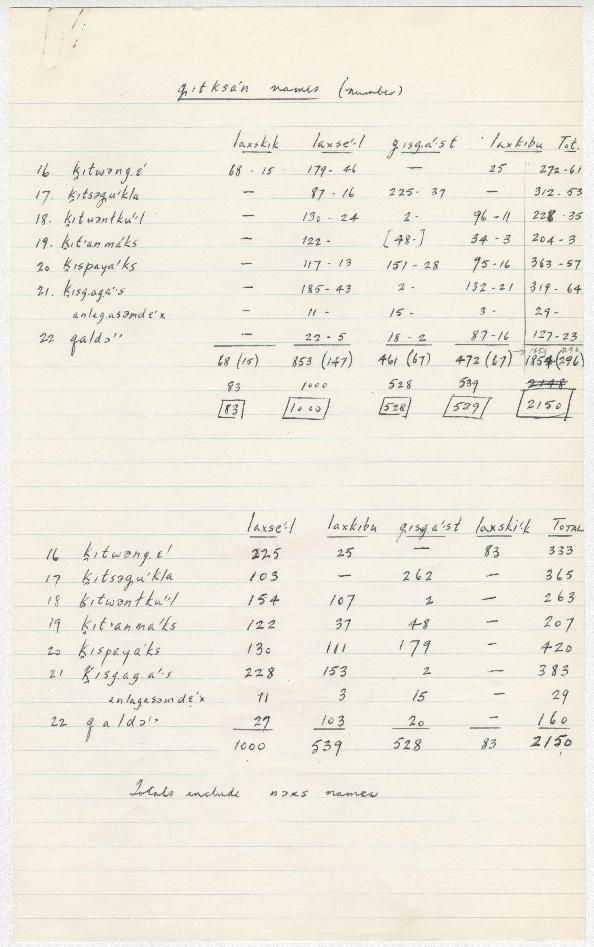 gitksá'n names (number)
laxskik laxse·'l gisgá·st laxkibu Tot.
16. ḳitwəng.ɛ' 68 - 15 179 - 46 — 25 272-61
17. ḳitsəgu'kla — 87 - 16 225 - 37 — 312-53
18. ḳitwəntku'·l — 130 - 24 2 - 96 - 11 228-35
19. ḳit'anmá'ks — 122 - [48-] 34 - 3 204-3
20 ḳispayá'ks — 117 - 13 151 - 28 95 - 16 363-57
21. ḳisg.agá·'s — 185-43 2 - 132-21 319-64
anlag.asəmdɛ'x — 11 - 15 - 3 - 29 -
22 qaldɔ'' — 22-5 18-2 87-16 127-23
68 (15) 853 (147) 461 (67) 472 (67) 1854 (296)
83 1000 528 539 2148
83 1000 528 539 2150
laxse·'l laxkibu gisgá·st laxski·'k TOTAL
16 ḳitwəng.ɛ' 225 25 — 83 333
17 ḳitsəgu'kla 103 — 262 — 365
18 ḳitwəntku'·l 154 107 2 — 263
19 ḳit'anmá'ks 122 37 48 — 207
20 ḳispayá'ks 130 111 179 — 420
21 ḳisg.ag.á·'s 228 153 2 — 383
anlagasəmdɛ'x 11 3 15 — 29
22 qaldɔ'' 27 103 20 — 160
1000 539 528 83 2150
Totals include nɔxs names